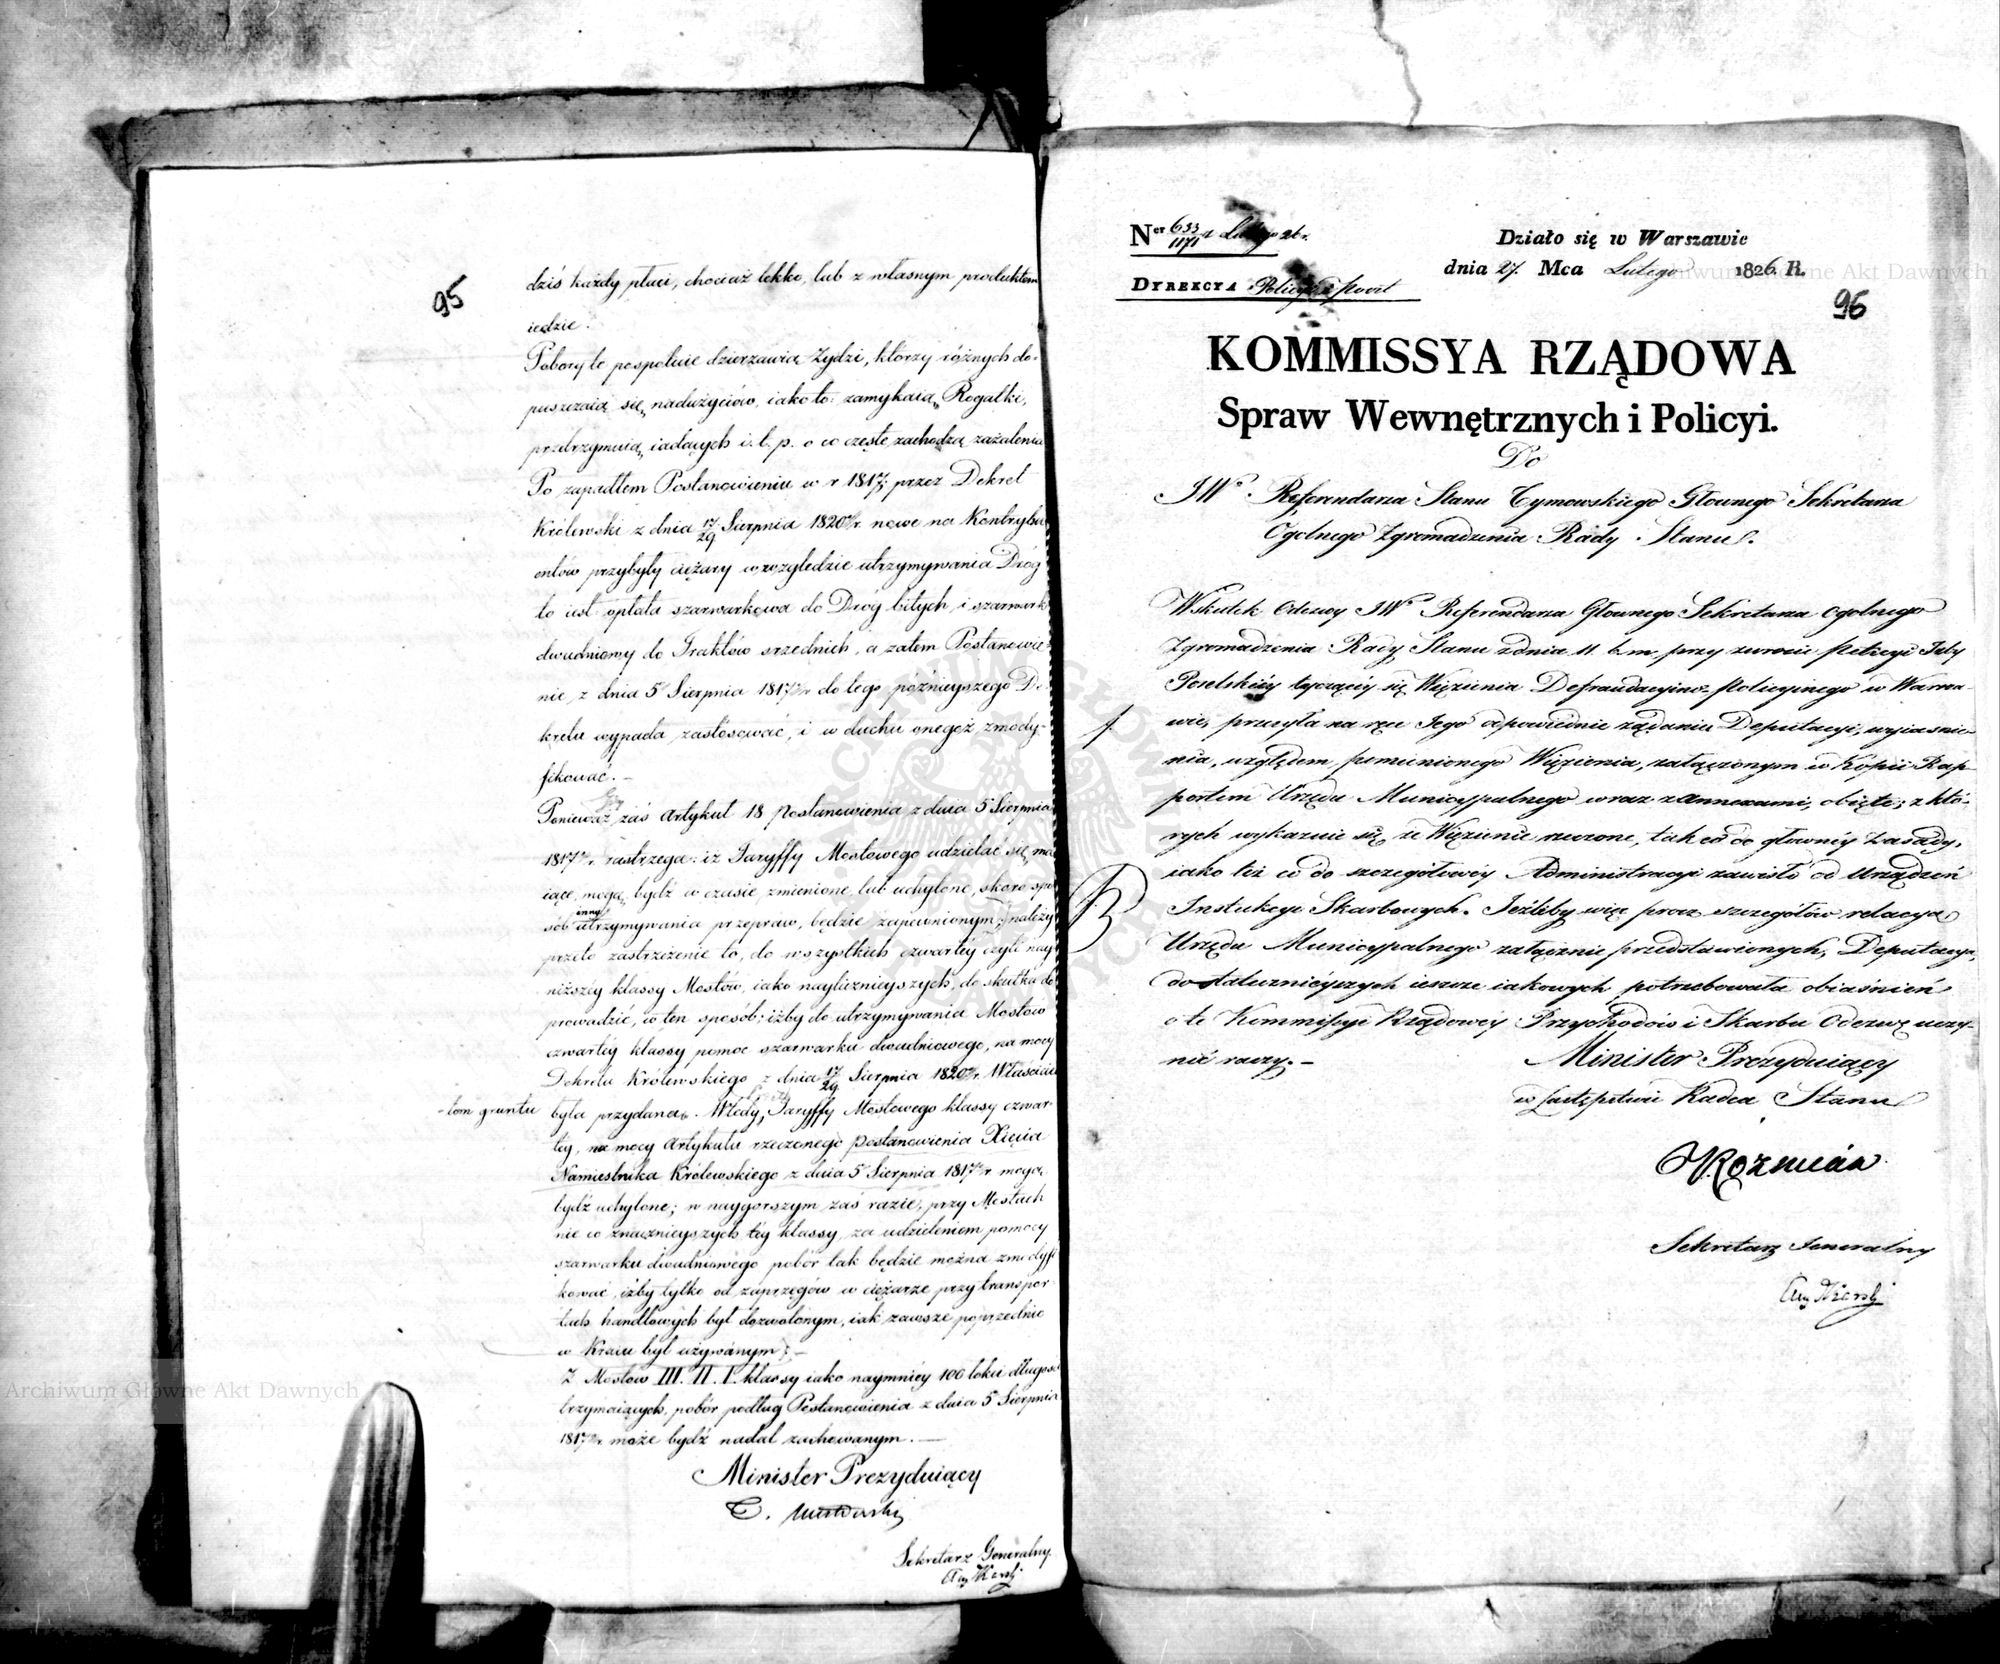 95
dziś każdy płaci, chociaż lekko, lub z własnym produktem
iedzie.
Pobory te pospolicie dzierżawią Żydzi, którzy różnych do-
puszczaią się nadużyciów, iako to: zamykaią Rogatki,
przetrzymuią iadących i. t. p. o co częste zachodzą zażalenia
Po zapadłem Postanowieniu w r 1817; przez Dekret
Królewski z dnia 17/29 Sierpnia 1820 r. nowe na Kontrybu
entów przybyły ciężary względzie utrzymywania Dróg
to iest opłata szarwarkowa do Dróg bitych, i szarwark
dwudniowy do Traktów srzednich, a zatem Postanowie-
nie, z dnia 5 Sierpnia 1817 r do tego późnieyszego De-
kretu wypada zastosować, i w duchu onegoż zmody-
fikować. —
Ponieważ zaś Artykuł 18 Postanowienia z dnia 5 Sierpnia
1817 r. zastrzega: iż Taryffy Mostowego udzielać się ma
iące, mogą bydź w czasie zmienione, lub uchylone, skoro spo
sób inny utrzymywania przepraw, będzie zapewnionym; należy
przeto zastrzeżenie to, do wszystkich czwartéy czyli nay
niższéy klassy Mostów, iako naylicznieyszych, do skutku do
prowadzić, w ten sposób; iżby do utrzymywania Mostów
czwartéy klassy pomoc szarwarku dwudniowego, na mocy
Dekretu Królewskiego z dnia 17/29 Sierpnia 1820 r. Właścicie
-lom gruntu była przydana. Wtedy, Taryffy Mostowego klassy czwar-
téy, na mocy Artykułu rzeczonego Postanowienia Xięcia
Namiestnika Królewskiego z dnia 5 Sierpnia 1817 r mogą
bydź uchylone; w naygorszym zaś razie, przy Mostach
nieco znacznieyszych téy klassy, za udzieleniem pomocy
szarwarku dwudniowego pobór tak będzie można zmodyfi
kować, iżby tylko od zaprzęgów w ciężarze przy transpor-
tach handlowych był dozwolonym, iak zawsze poprzednio
w Kraiu był używanym; —
Z Mostów III. II. I. klassy iako naymniéy 100 łokci długości
trzymaiących, pobór podług Postanowienia z dnia 5 Sierpnia
1817 r. może bydź nadal zachowanym. —
Minister Prezyduiący
T. Mostowski
Sekretarz Generalny
Aug Karski
Ner 633/1171 Lutego 26 r.
Działo się w Warszawie
DYREKCYA Policyi i Poczt
dnia 27. Mca Lutego 1826. R.
96
KOMMISSYA RZĄDOWA
Spraw Wewnętrznych i Policyi.
Do
JWo Referendarza Stanu Tymowskiego Głównego Sekretarza
Ogolnego Zgromadzenia Rady Stanu.
Wskutek Odezwy JWo Referendarza Głownego Sekretarza ogolnego
Zgromadzenia Rady Stanu z dnia 11. b. m. przy zwrocie Petycyi Izby
Poselskiéy tyczącéy się Więzienia Defraudacyino-Policyinego w Warsza-
wie, przesyła na ręce Jego odpowiednie żądaniu Deputacyi, wyiaśnie-
nia, względem pomienionego Więzienia, załączonym w Kopii Rap-
portem Urzędu Municypalnego wraz z annexami, obięte; z któ-
rych wykazuie się, że Więzienie rzeczone, tak co do głownéy zasady,
iako też co do szczegółowéy Administracyi zawisło od Urządzeń
Instukcyi Skarbowych. Jeżeliby więc prócz szczegółów relacyą
Urzędu Municypalnego załącznie przedstawionych, Deputacya,
dostatecznieyszych ieszcze iakowych potrzebowała obiaśnień
o te Kommissyi Rządowéy Przychodów i Skarbu Odezwę uczy-
nić raczy. —
Minister Prezyduiący
w Zastępstwie Radca Stanu
Koźmian
Sekretarz Jeneralny
Aug Karski
Archiwum Główne Akt Dawnych
Archiwum Główne Akt Dawnych